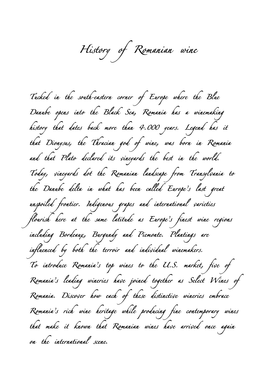 History of Romanian wine
Tucked in the south-eastern corner of Europe where the Blue
Danube opens into the Black Sea, Romania has a winemaking
history that dates back more than 4.000 years. Legend has it
that Dionysus, the Thracian god of wine, was born in Romania
and that Plato declared its vineyards the best in the world.
Today, vineyards dot the Romanian landscape from Transylvania to
the Danube delta in what has been called Europe's last great
unspoiled frontier. Indigenous grapes and international varieties
flourish here at the same latitude as Europe's finest wine regions
including Bordeaux, Burgundy and Piemonte. Plantings are
influenced by both the terroir and individual winemakers.
To introduce Romania's top wines to the U.S. market, five of
Romania's leading wineries have joined together as Select Wines of
Romania. Discover how each of these distinctive wineries embrace
Romania's rich wine heritage while producing fine contemporary wines
that make it known that Romanian wines have arrived once again
on the international scene.